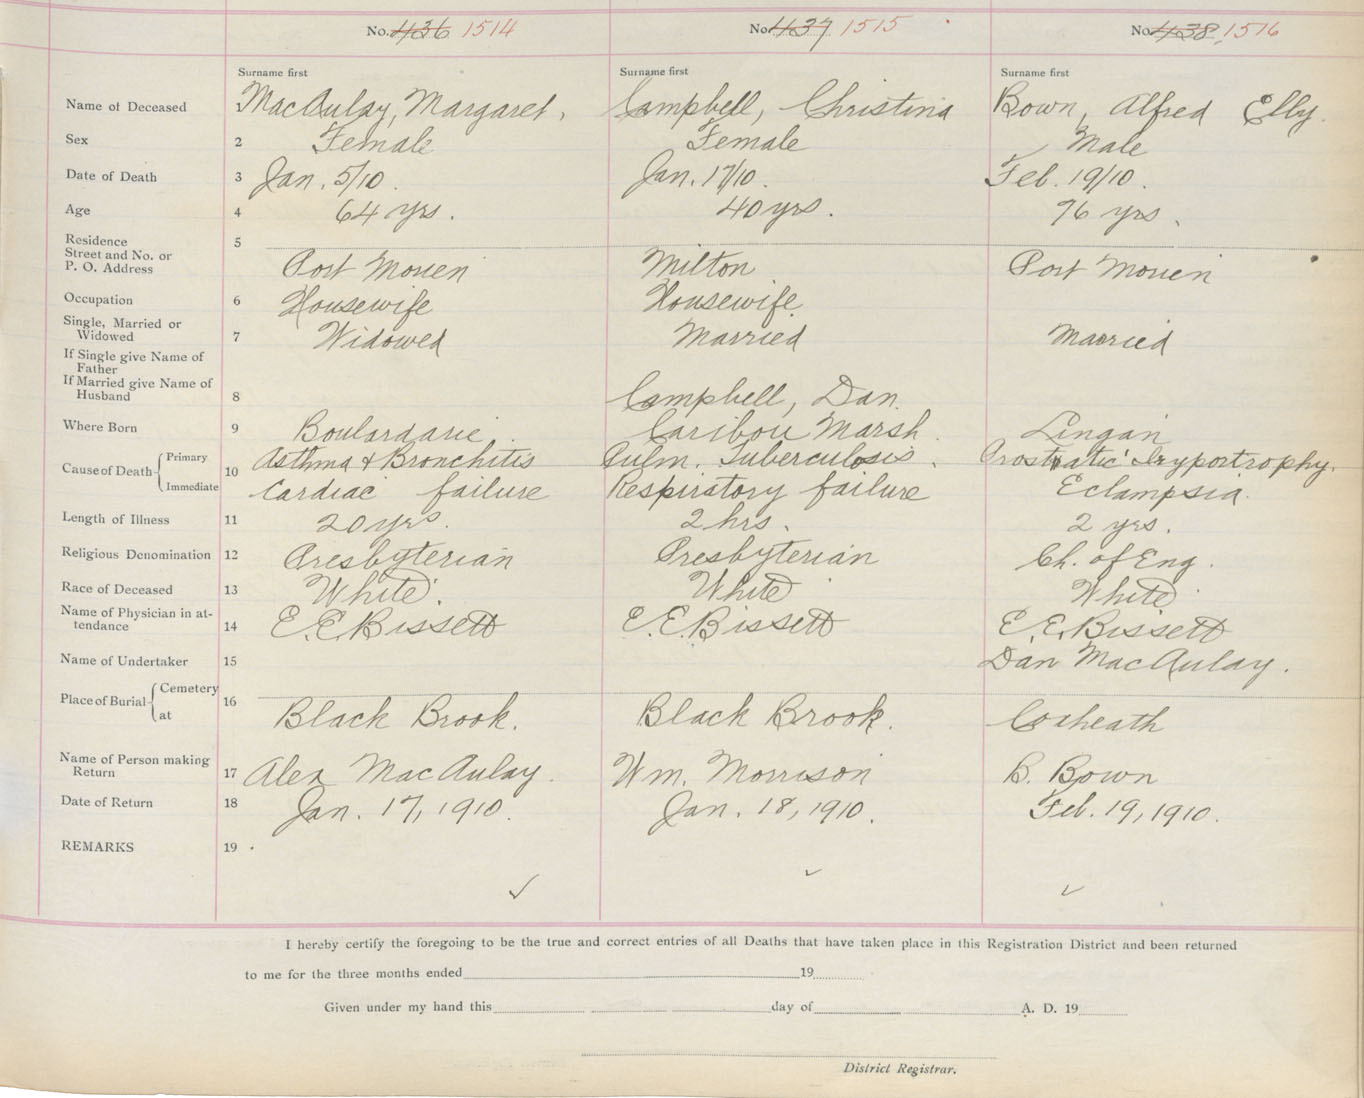 No. 436 1514 No. 437 1515 No. 438 1516
Surname first Surname first Surname first
Name of Deceased 1 MacAulay, Margaret, Campbell, Christina Bown, Alfred Elby.
Sex 2 Female Female Male
Date of Death 3 Jan. 5/10. Jan. 17/10. Feb. 19/10.
Age 4 64 yrs. 40 yrs. 76 yrs.
Residence 5
Street and No. or
P. O. Address Port Morien Milton Port Morien
Occupation 6 Housewife Housewife
Single, Married or
Widowed 7 Widowed Married Married
If Single give Name of
Father
If Married give Name of
Husband 8 Campbell, Dan.
Where Born 9 Boulardarie. Caribou Marsh. Lingan
Cause of Death Primary 10 Asthma & Bronchitis Pulm. Tuberculosis. Prostatic Hyportrophy.
Immediate Cardiac failure Respiratory failure Eclampsia.
Length of Illness 11 20 yrs. 2 hrs. 2 yrs.
Religious Denomination 12 Presbyterian Presbyterian Ch. of Eng.
Race of Deceased 13 White. White White
Name of Physician in at-
tendance 14 E. E. Bissett E. E. Bissett E. E. Bissett
Name of Undertaker 15 Dan MacAulay.
Place of Burial Cemetery 16
at Black Brook. Black Brook. Coxheath
Name of Person making
Return 17 Alex MacAulay. Wm. Morrison B. Bown
Date of Return 18 Jan. 17, 1910. Jan. 18, 1910. Feb. 19, 1910.
REMARKS 19
I hereby certify the foregoing to be the true and correct entries of all Deaths that have taken place in this Registration District and been returned
to me for the three months ended 19
Given under my hand this day of A. D. 19
District Registrar.